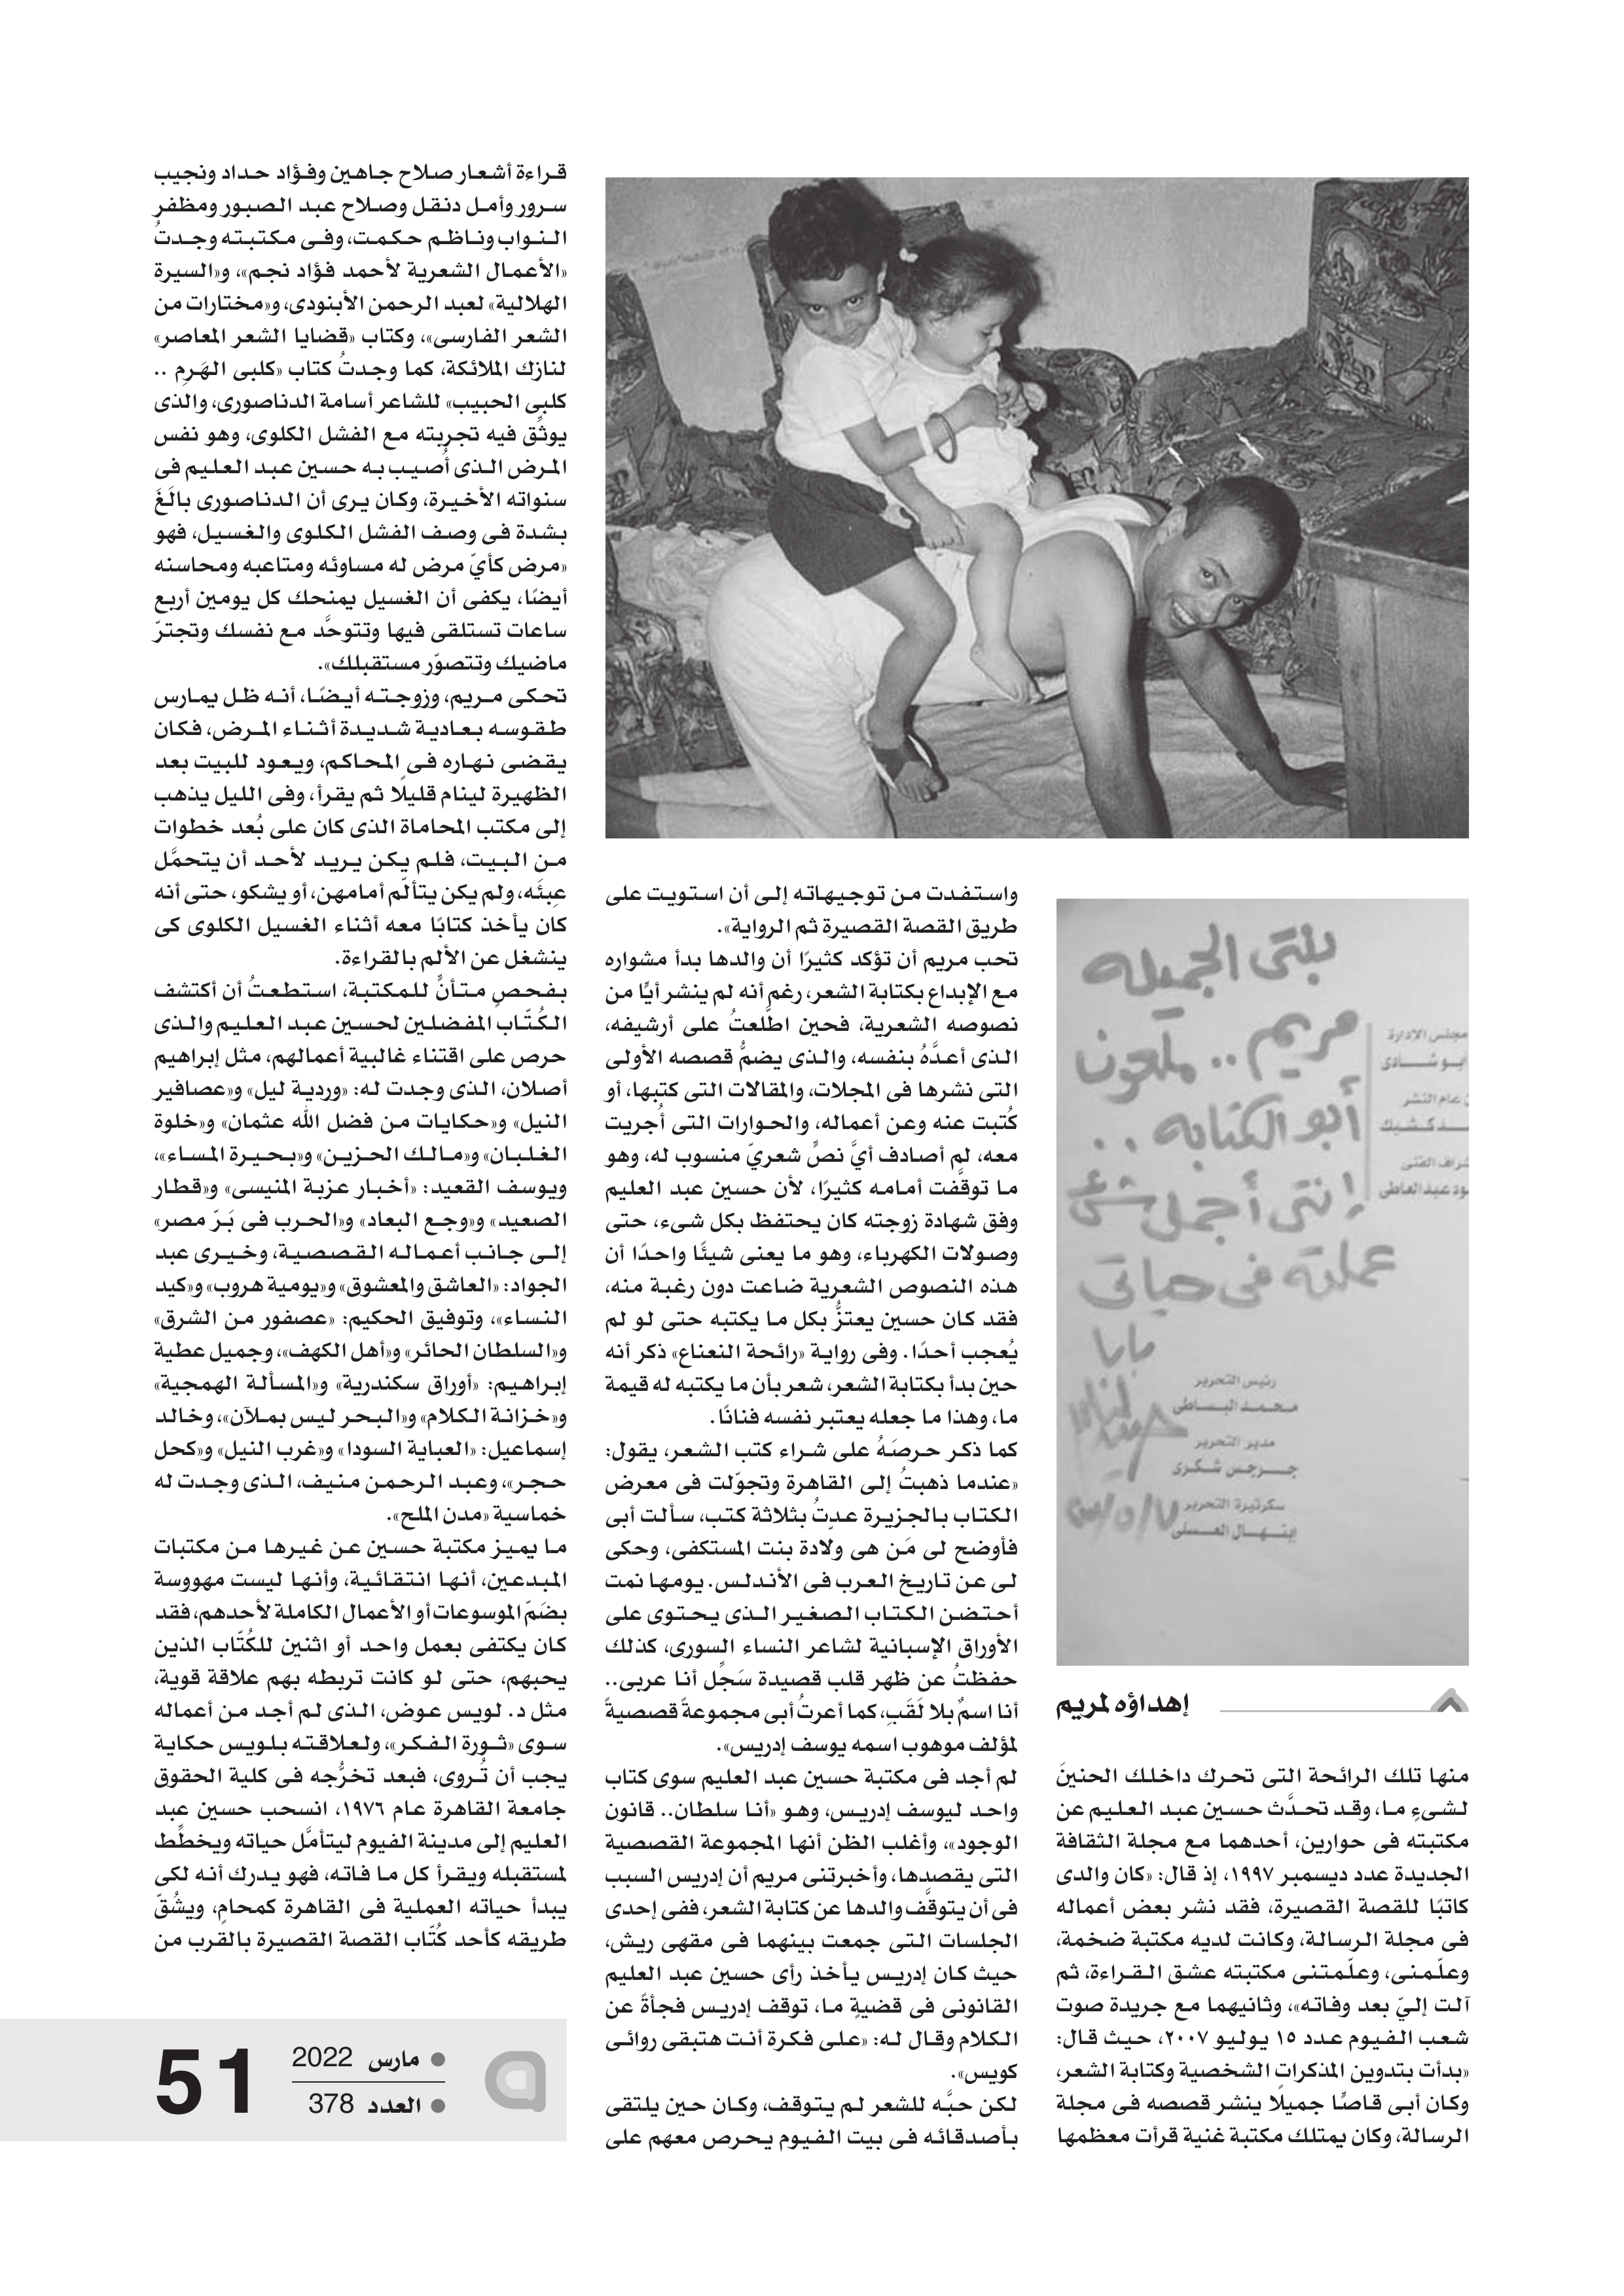 بنتى الجميله
مريم .. ملعون
أبو الكتابه ..
إنتى أجمل شئ
عملته فى حياتى
بابا
مجلس الادارة
أبو شادى
عام النشر
ـد كشيك
شراف الفنى
ود عبد العاطى
رئيس التحرير
محمد البساطى
مدير التحرير
جرجس شكرى
سكرتيرة التحرير
ابتهال العسلى
إهداؤه لمريم
منها تلك الرائحة التى تحرك داخلك الحنينَ
لشىءٍ ما، وقد تحدَّث حسين عبد العليم عن
مكتبته فى حوارين، أحدهما مع مجلة الثقافة
الجديدة عدد ديسمبر ١٩٩٧، إذ قال: «كان والدى
كاتبًا للقصة القصيرة، فقد نشر بعض أعماله
فى مجلة الرسالة، وكانت لديه مكتبة ضخمة،
وعلّمنى، وعلّمتنى مكتبته عشق القراءة، ثم
آلت إليّ بعد وفاته»، وثانيهما مع جريدة صوت
شعب الفيوم عدد ١٥ يوليو ٢٠٠٧، حيث قال:
«بدأت بتدوين المذكرات الشخصية وكتابة الشعر،
وكان أبى قاصًّا جميلًا ينشر قصصه فى مجلة
الرسالة، وكان يمتلك مكتبة غنية قرأت معظمها
واستفدت من توجيهاته إلى أن استويت على
طريق القصة القصيرة ثم الرواية».
تحب مريم أن تؤكد كثيرًا أن والدها بدأ مشواره
مع الإبداع بكتابة الشعر، رغم أنه لم ينشر أيًّا من
نصوصه الشعرية، فحين اطَّلعتُ على أرشيفه،
الذى أعدَّهُ بنفسه، والذى يضمُّ قصصه الأولى
التى نشرها فى المجلات، والمقالات التى كتبها، أو
كُتبت عنه وعن أعماله، والحوارات التى أُجريت
معه، لم أصادف أيَّ نصٍّ شعريّ منسوب له، وهو
ما توقَّفت أمامه كثيرًا، لأن حسين عبد العليم
وفق شهادة زوجته كان يحتفظ بكل شىء، حتى
وصولات الكهرباء، وهو ما يعنى شيئًا واحدًا أن
هذه النصوص الشعرية ضاعت دون رغبة منه،
فقد كان حسين يعتزُّ بكل ما يكتبه حتى لو لم
يُعجب أحدًا. وفى رواية «رائحة النعناع» ذكر أنه
حين بدأ بكتابة الشعر، شعر بأن ما يكتبه له قيمة
ما، وهذا ما جعله يعتبر نفسه فنانًا.
كما ذكر حرصَهُ على شراء كتب الشعر، يقول:
«عندما ذهبتُ إلى القاهرة وتجوّلت فى معرض
الكتاب بالجزيرة عدتُ بثلاثة كتب، سألت أبى
فأوضح لى مَن هى ولادة بنت المستكفى، وحكى
لى عن تاريخ العرب فى الأندلس. يومها نمت
أحتضن الكتاب الصغير الذى يحتوى على
الأوراق الإسبانية لشاعر النساء السورى، كذلك
حفظتُ عن ظهر قلب قصيدة سَجِّل أنا عربى..
أنا اسمٌ بلا لَقَبِ، كما أعرتُ أبى مجموعةً قصصيةً
لمؤلف موهوب اسمه يوسف إدريس».
لم أجد فى مكتبة حسين عبد العليم سوى كتاب
واحد ليوسف إدريس، وهو «أنا سلطان.. قانون
الوجود»، وأغلب الظن أنها المجموعة القصصية
التى يقصدها، وأخبرتنى مريم أن إدريس السبب
فى أن يتوقَّف والدها عن كتابة الشعر، ففى إحدى
الجلسات التى جمعت بينهما فى مقهى ريش،
حيث كان إدريس يأخذ رأى حسين عبد العليم
القانونى فى قضيةٍ ما، توقف إدريس فجأةً عن
الكلام وقال له: «على فكرة أنت هتبقى روائى
كويس».
لكن حبَّه للشعر لم يتوقف، وكان حين يلتقى
بأصدقائه فى بيت الفيوم يحرص معهم على
قراءة أشعار صلاح جاهين وفؤاد حداد ونجيب
سرور وأمل دنقل وصلاح عبد الصبور ومظفر
النواب وناظم حكمت، وفى مكتبته وجدتُ
«الأعمال الشعرية لأحمد فؤاد نجم»، و«السيرة
الهلالية» لعبد الرحمن الأبنودى، و«مختارات من
الشعر الفارسى»، وكتاب «قضايا الشعر المعاصر»
لنازك الملائكة، كما وجدتُ كتاب «كلبى الهَرِم ..
كلبى الحبيب» للشاعر أسامة الدناصورى، والذى
يوثِّق فيه تجربته مع الفشل الكلوى، وهو نفس
المرض الذى أُصيب به حسين عبد العليم فى
سنواته الأخيرة، وكان يرى أن الدناصورى بالَغَ
بشدة فى وصف الفشل الكلوى والغسيل، فهو
«مرض كأيّ مرض له مساوئه ومتاعبه ومحاسنه
أيضًا، يكفى أن الغسيل يمنحك كل يومين أربع
ساعات تستلقى فيها وتتوحَّد مع نفسك وتجترّ
ماضيك وتتصوّر مستقبلك».
تحكى مريم، وزوجته أيضًا، أنه ظل يمارس
طقوسه بعادية شديدة أثناء المرض، فكان
يقضى نهاره فى المحاكم، ويعود للبيت بعد
الظهيرة لينام قليلًا ثم يقرأ، وفى الليل يذهب
إلى مكتب المحاماة الذى كان على بُعد خطوات
من البيت، فلم يكن يريد لأحد أن يتحمَّل
عِبئَه، ولم يكن يتألّم أمامهن، أو يشكو، حتى أنه
كان يأخذ كتابًا معه أثناء الغسيل الكلوى كى
ينشغل عن الألم بالقراءة.
بفحصٍ متأنٍّ للمكتبة، استطعتُ أن أكتشف
الكُتّاب المفضلين لحسين عبد العليم والذى
حرص على اقتناء غالبية أعمالهم، مثل إبراهيم
أصلان، الذى وجدت له: «وردية ليل» و«عصافير
النيل» و«حكايات من فضل الله عثمان» و«خلوة
الغلبان» و«مالك الحزين» و«بحيرة المساء»،
ويوسف القعيد: «أخبار عزبة المنيسى» و«قطار
الصعيد» و«وجع البعاد» و«الحرب فى بَرّ مصر»
إلى جانب أعماله القصصية، وخيرى عبد
الجواد: «العاشق والمعشوق» و«يومية هروب» و«كيد
النساء»، وتوفيق الحكيم: «عصفور من الشرق»
و«السلطان الحائر» و«أهل الكهف»، وجميل عطية
إبراهيم: «أوراق سكندرية» و«المسألة الهمجية»
و«خزانة الكلام» و«البحر ليس بملآن»، وخالد
إسماعيل: «العباية السودا» و«غرب النيل» و«كحل
حجر»، وعبد الرحمن منيف، الذى وجدت له
خماسية «مدن الملح».
ما يميز مكتبة حسين عن غيرها من مكتبات
المبدعين، أنها انتقائية، وأنها ليست مهووسة
بضَمّ الموسوعات أو الأعمال الكاملة لأحدهم، فقد
كان يكتفى بعمل واحد أو اثنين للكُتّاب الذين
يحبهم، حتى لو كانت تربطه بهم علاقة قوية،
مثل د. لويس عوض، الذى لم أجد من أعماله
سوى «ثورة الفكر»، ولعلاقته بلويس حكاية
يجب أن تُروى، فبعد تخرُّجه فى كلية الحقوق
جامعة القاهرة عام ١٩٧٦، انسحب حسين عبد
العليم إلى مدينة الفيوم ليتأمَّل حياته ويخطِّط
لمستقبله ويقرأ كل ما فاته، فهو يدرك أنه لكى
يبدأ حياته العملية فى القاهرة كمحامٍ، ويشُقّ
طريقه كأحد كُتّاب القصة القصيرة بالقرب من
● مارس 2022
● العدد 378
51